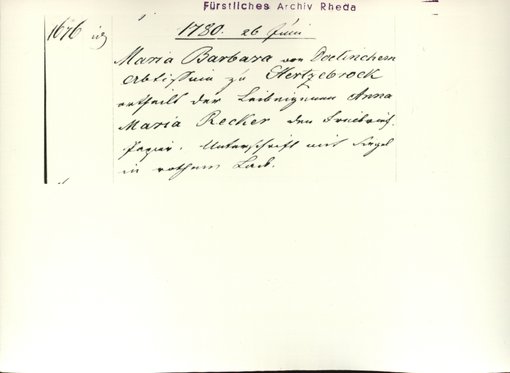 Fürstliches Archiv Rheda
1676
1780. 26 Juni
Maria Barbara von Doetinchem
Abtissin zu Hertzebrock
ertheilt der Leibeigenen Anna
Maria Recker den Freibrief.
Papier. Unterschrift mit Siegel
in rothem Lack.